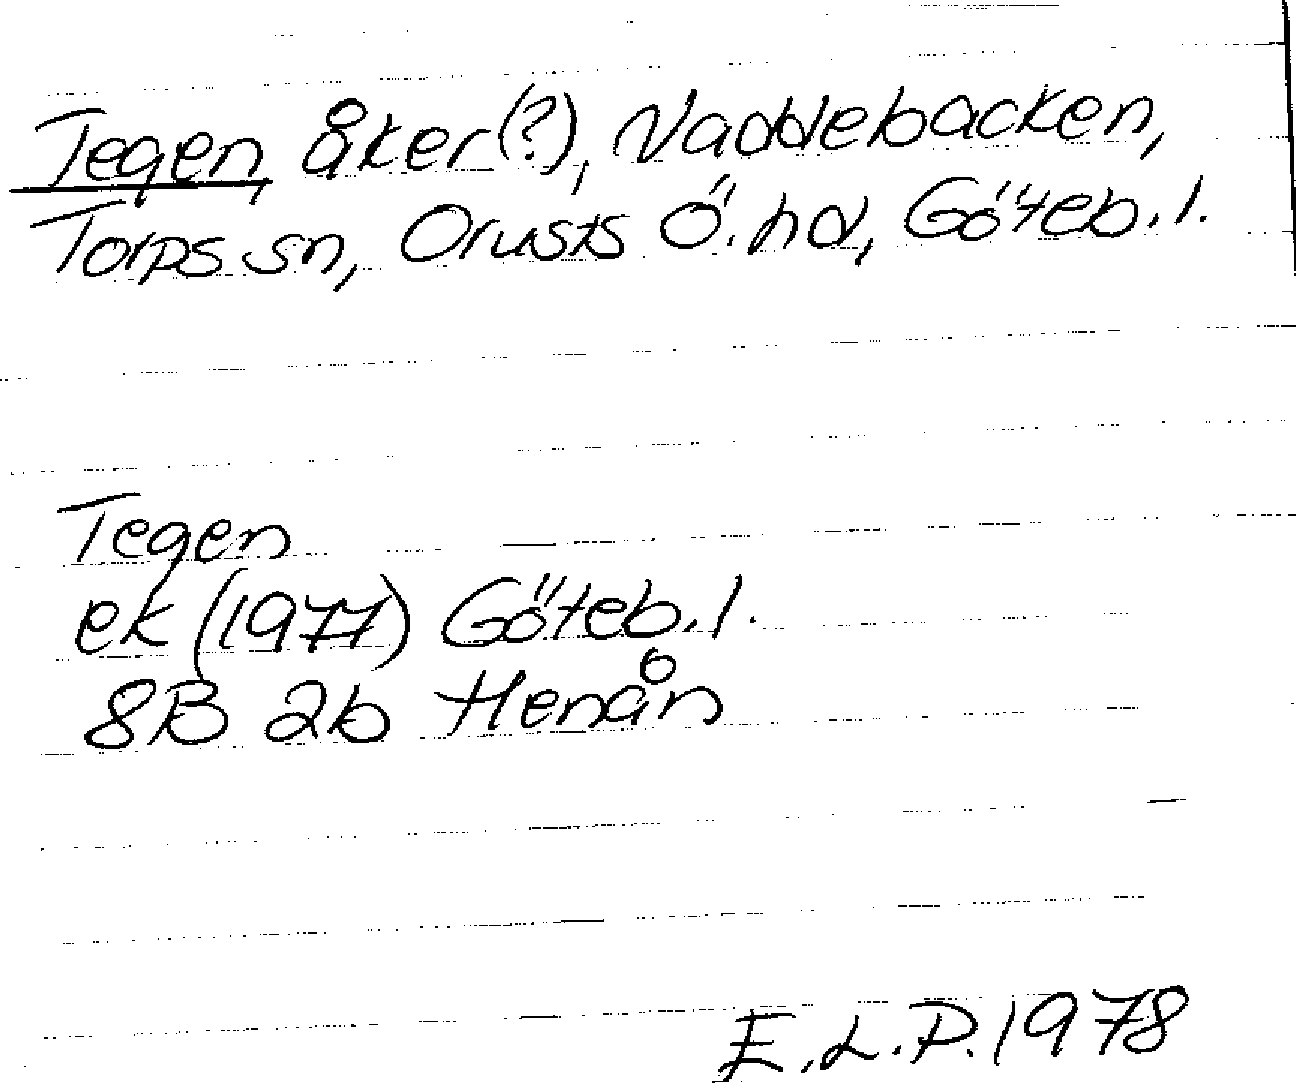 Tegen, åker(?), Vaddebacken,
Torps sn, Orusts Ö. hd, Göteb. l.
Tegen
ek (1977) Göteb. l.
8B 2b Henån
E.L.P. 1978